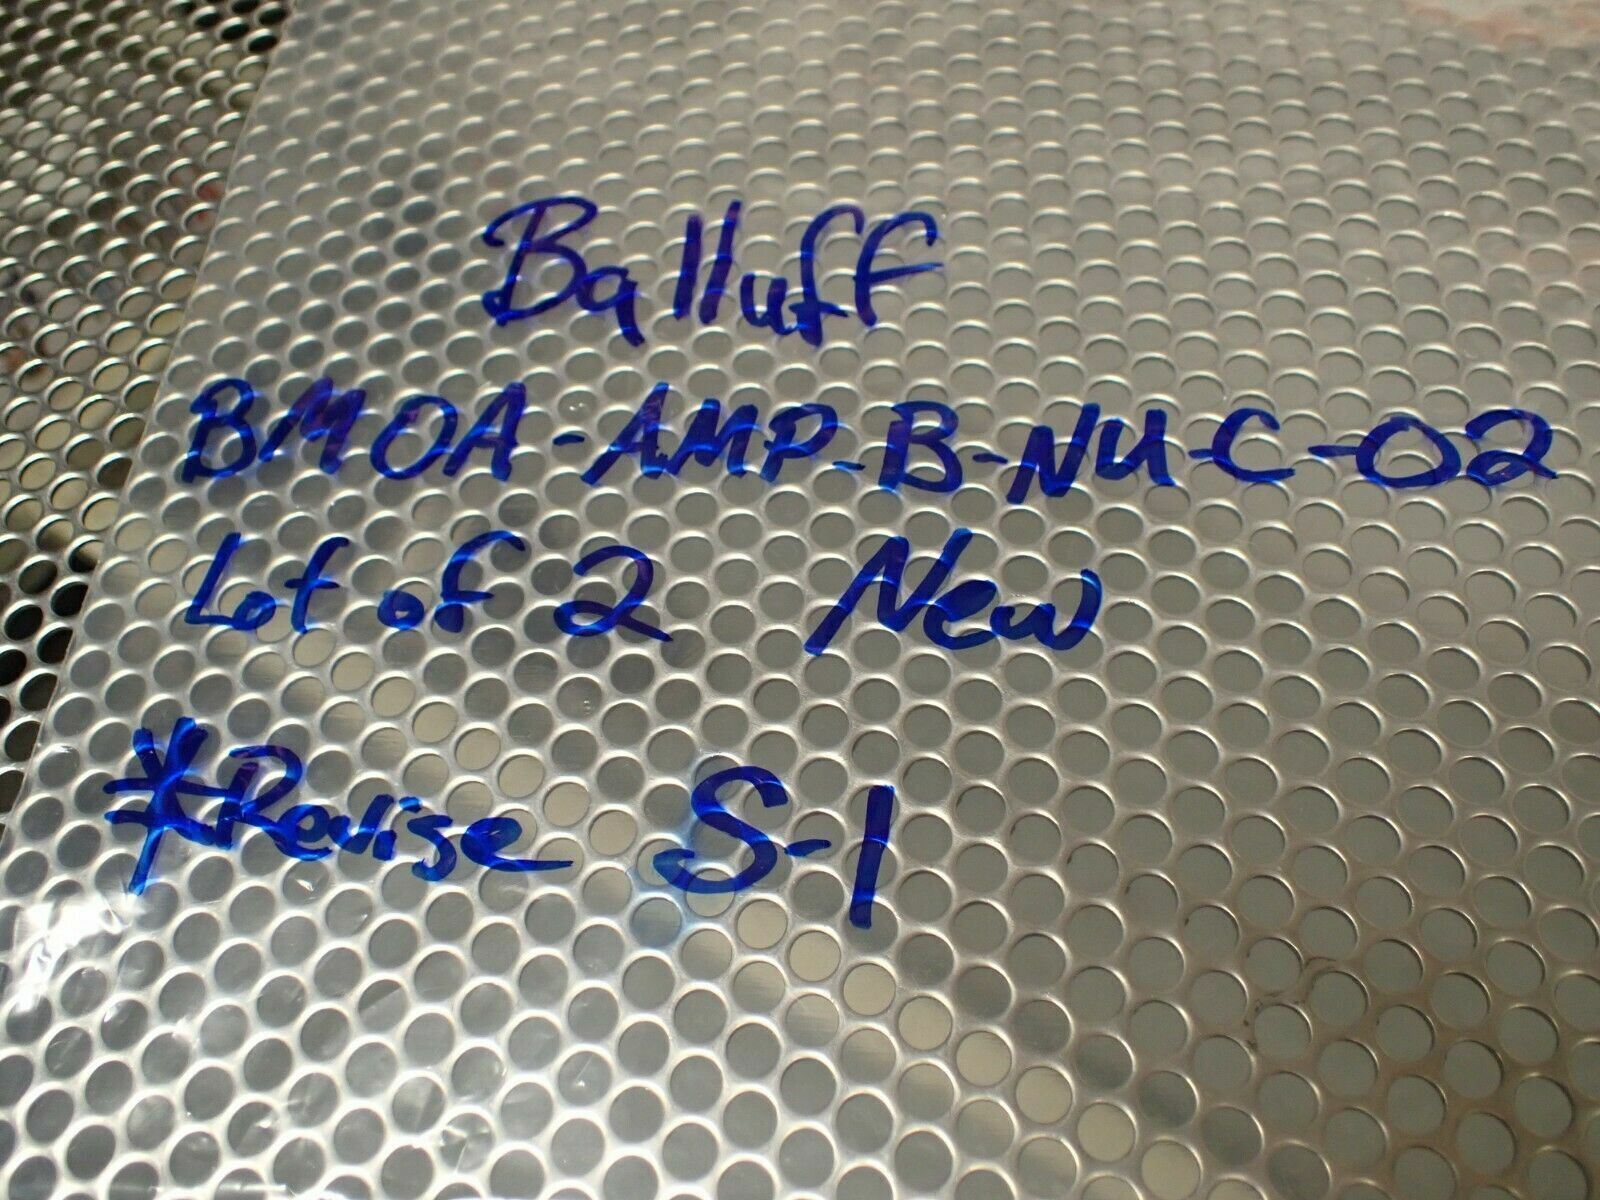 Balluff
BMOA-AMP-B-NU-C-02
Lot of 2 New
*Revise S-1